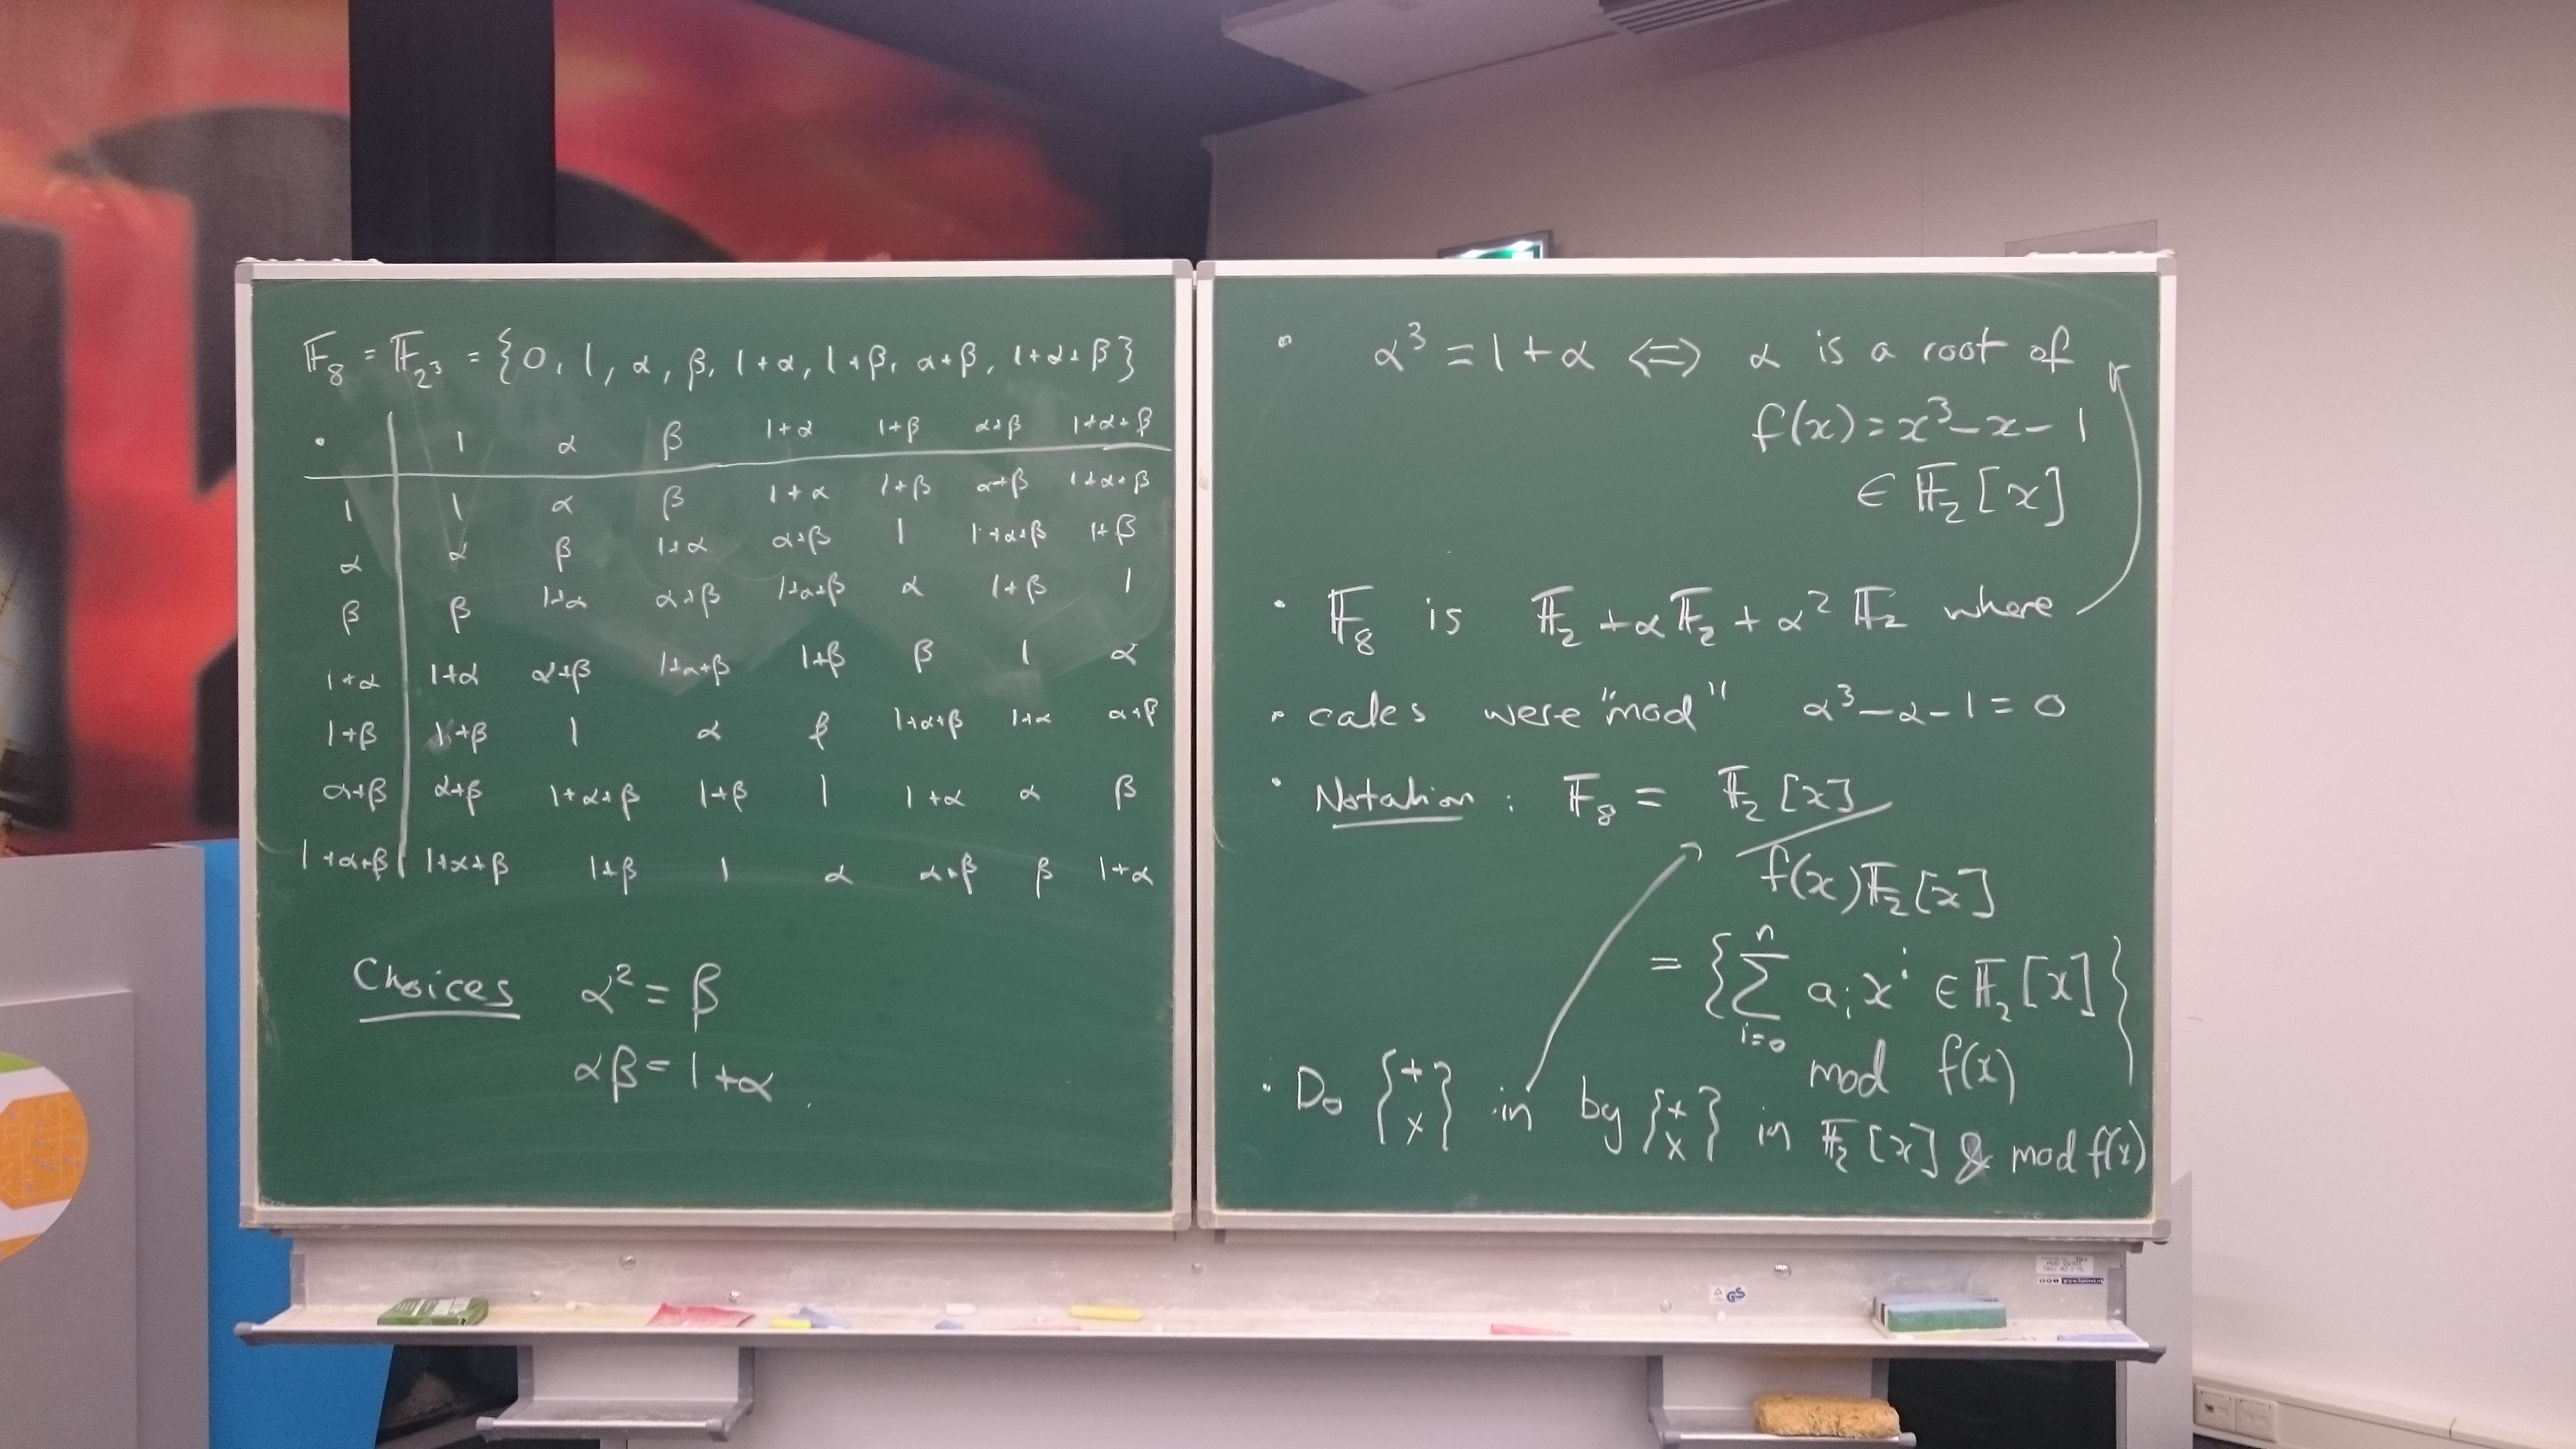 𝔽₈ = 𝔽₂³ = {0, 1, α, β, 1+α, 1+β, α+β, 1+α+β}
· 1 α β 1+α 1+β α+β 1+α+β
1 1 α β 1+α 1+β α+β 1+α+β
α α β 1+α α+β 1 1+α+β 1+β
β β 1+α α+β 1+α+β α 1+β 1
1+α 1+α α+β 1+α+β 1+β β 1 α
1+β 1+β 1 α β 1+α+β 1+α α+β
α+β α+β 1+α+β 1+β 1 1+α α β
1+α+β 1+α+β 1+β 1 α α+β β 1+α
Choices α² = β
αβ = 1+α
• α³ = 1+α ⇔ α is a root of
f(x) = x³-x-1
∈ 𝔽₂[x]
• 𝔽₈ is 𝔽₂ + α𝔽₂ + α²𝔽₂ where
• calcs were "mod" α³-α-1 = 0
• Notation : 𝔽₈ = 𝔽₂[x] /
f(x)𝔽₂[x]
= {∑ᵢ₌₀ⁿ aᵢxⁱ ∈ 𝔽₂[x]}
mod f(x)
• Do {+ ×} in by {+ ×} in 𝔽₂[x] & mod f(x)